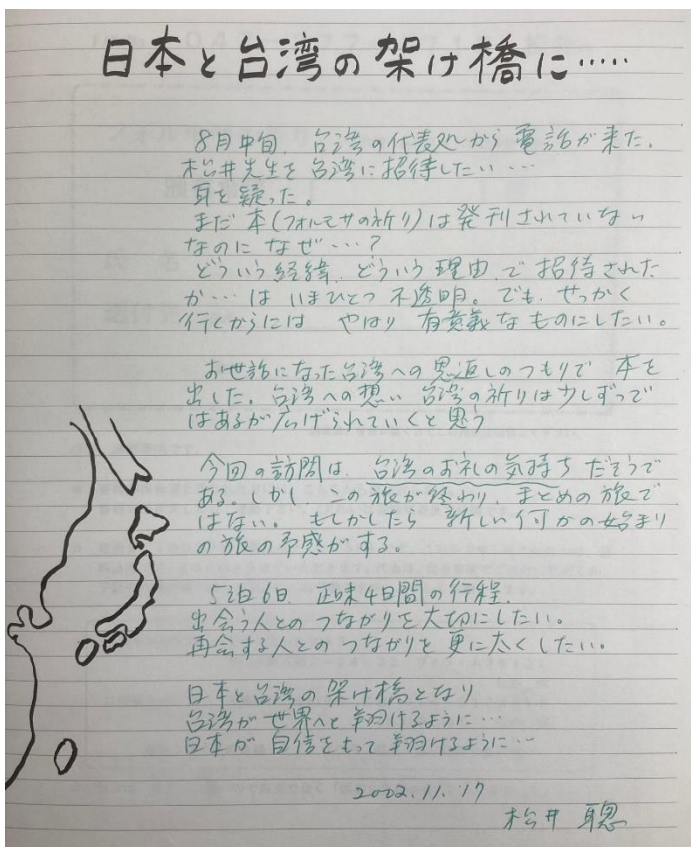 日本と台湾の架け橋に……
8月中旬、台湾の代表処から電話が来た。
松井先生を台湾に招待したい…
耳を疑った。
まだ本(フォルモサの祈り)は発刊されていない
なのになぜ…?
どういう経緯、どういう理由で招待された
か…はいまひとつ不透明。でも、せっかく
行くからには やはり 有意義なものにしたい。
お世話になった台湾への恩返しのつもりで 本を
出した。台湾への想い 台湾の祈りは少しずつで
はあるが広げられていくと思う
今回の訪問は、台湾のお礼の気持ちだそうで
ある。しかし この旅が終わり、まとめの旅で
はない。もしかしたら 新しい何かの始まり
の旅の予感がする。
5泊6日、正味4日間の行程、
出会う人とのつながりを大切にしたい。
再会する人とのつながりを更に太くしたい。
日本と台湾の架け橋となり
台湾が世界へと翔けるように…
日本が自信をもって翔けるように…
2002.11.17
松井 聡